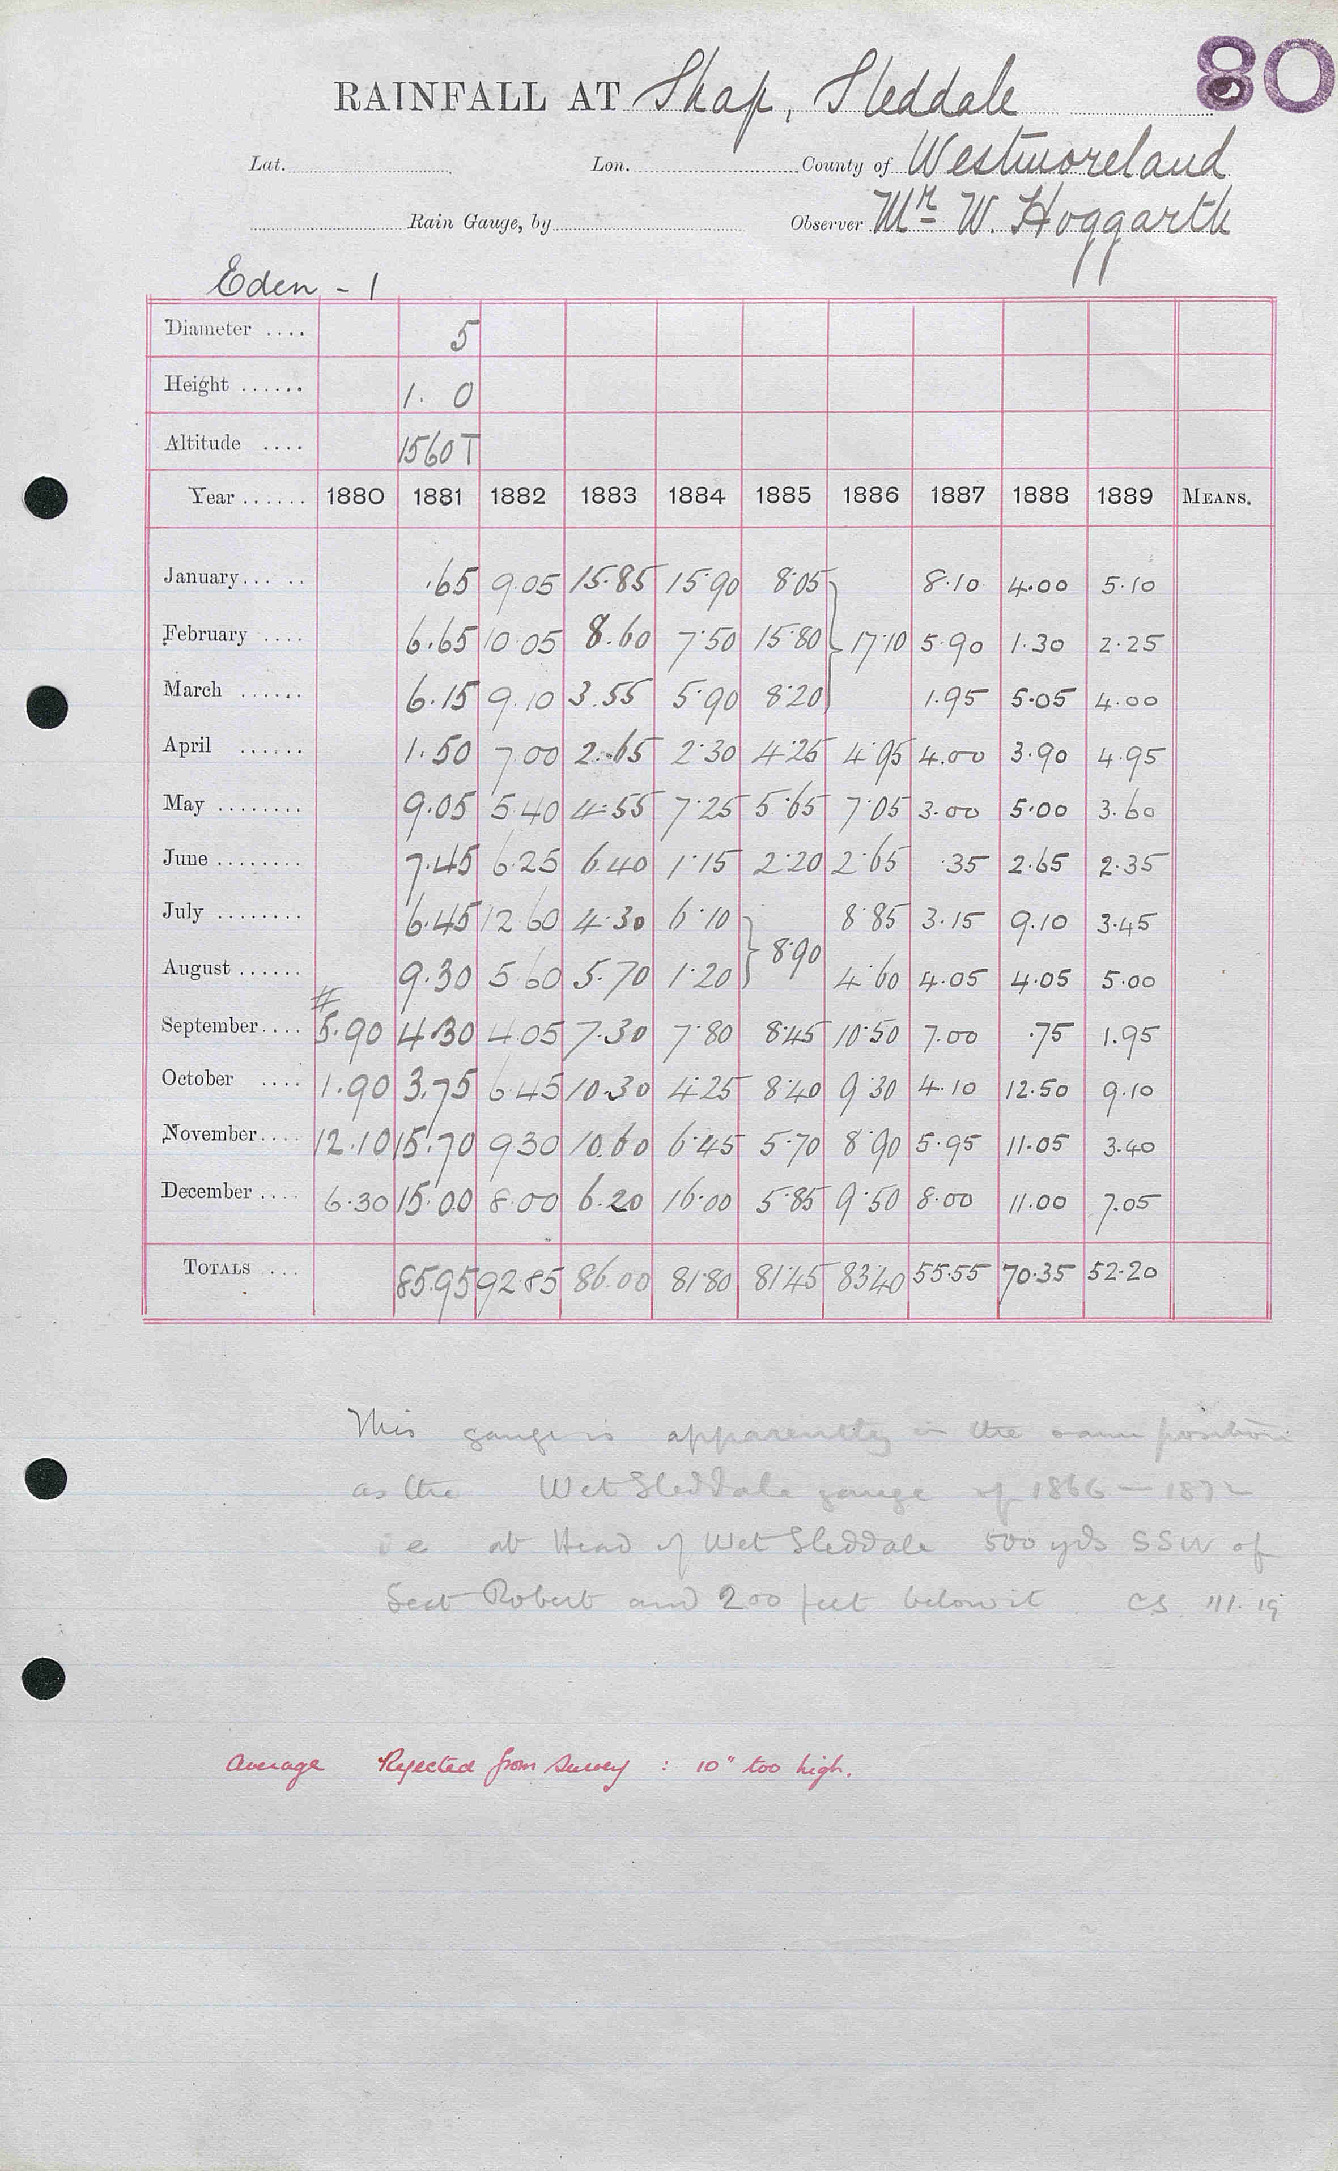 80
RAINFALL AT Shap, Sleddale
Lat. Lon. County of Westmoreland
Rain Gauge, by Observer Mr W. Hoggarth
Eden - 1
Diameter .... 5
Height ...... 1. 0
Altitude .... 1560T
Year ...... 1880 1881 1882 1883 1884 1885 1886 1887 1888 1889 MEANS.
January... .. .65 9.05 15.85 15.90 8.05 8.10 4.00 5.10
February .... 6.65 10.05 8.60 7.50 15.80 } 17.10 5.90 1.30 2.25
March ...... 6.15 9.10 3.55 5.90 8.20 1.95 5.05 4.00
April ...... 1.50 7.00 2.65 2.30 4.25 4.95 4.00 3.90 4.95
May ........ 9.05 5.40 4.55 7.25 5.65 7.05 3.00 5.00 3.60
June ........ 7.45 6.25 6.40 1.15 2.20 2.65 .35 2.65 2.35
July ........ 6.45 12.60 4.30 6.10 } 8.90 8.85 3.15 9.10 3.45
August ...... 9.30 5.60 5.70 1.20 4.60 4.05 4.05 5.00
#
September.... 5.90 4.30 4.05 7.30 7.80 8.45 10.50 7.00 .75 1.95
October .... 1.90 3.75 6.45 10.30 4.25 8.40 9.30 4.10 12.50 9.10
November.... 12.10 15.70 9.30 10.60 6.45 5.70 8.90 5.95 11.05 3.40
December .... 6.30 15.00 8.00 6.20 16.00 5.85 9.50 8.00 11.00 7.05
TOTALS ... 85.95 92.85 86.00 81.80 81.45 83.40 55.55 70.35 52.20
This gauge is apparently in the same position
as the Wet Sleddale gauge of 1866 – 1872
ie at Head of Wet Sleddale 500 yds SSW of
Seat Robert and 200 feet below it CS
Average Rejected from Survey : 10" too high.